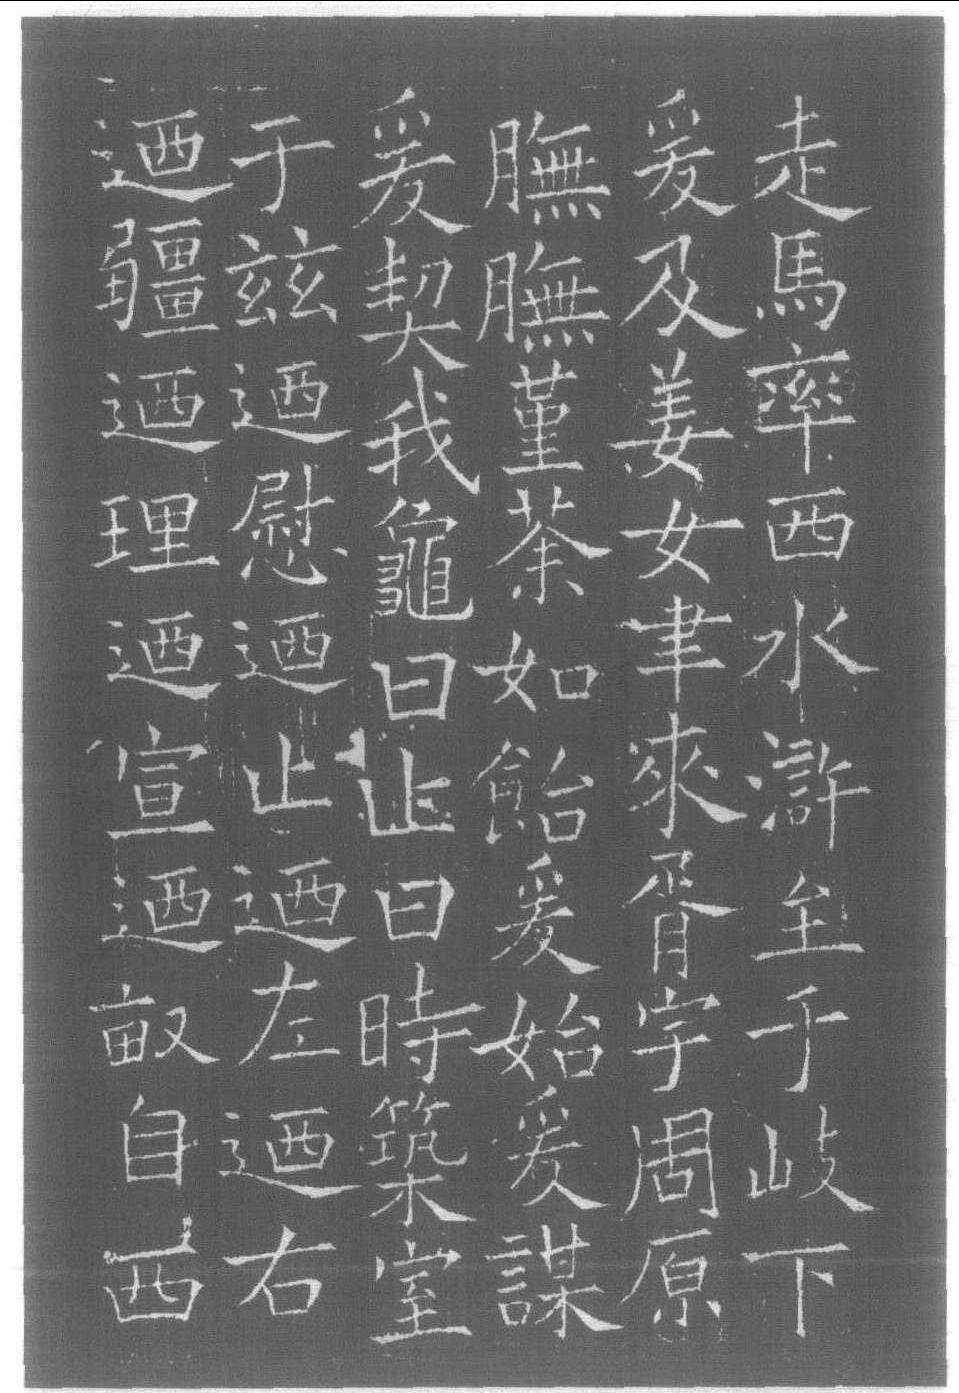 走馬率西水滸至于岐下
爰及姜女聿來胥宇周原
膴膴菫荼如飴爰始爰謀
爰契我龜曰止曰時築室
于茲迺慰迺止迺左迺右
迺疆迺理迺宣迺畝自西